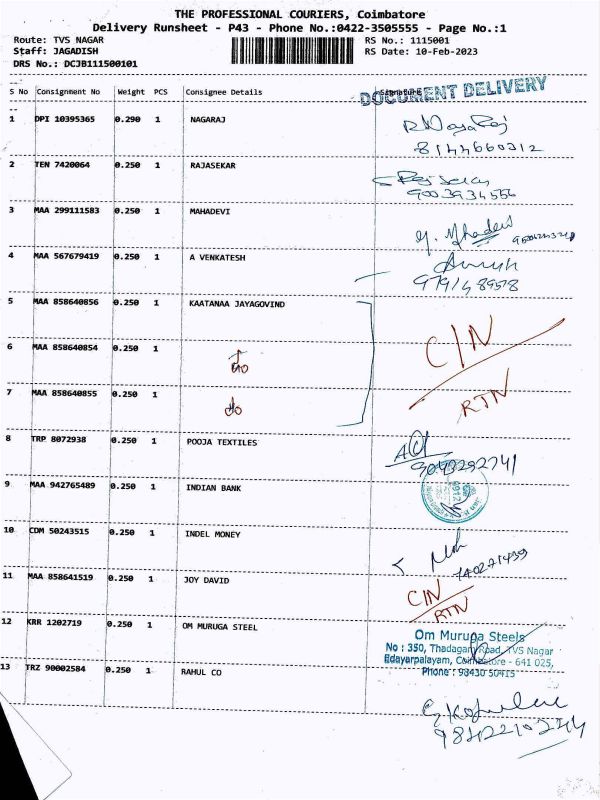 THE PROFESSIONAL COURIERS, Coimbatore
Delivery Runsheet - P43 - Phone No.:0422-3505555 - Page No.:1
Route: TVS NAGAR RS No.: 1115001
Staff: JAGADISH RS Date: 10-Feb-2023
DRS No.: DCJB111500101
S No Consignment No Weight PCS Consignee Details Signature
DOCUMENT DELIVERY
1 DPI 10395365 0.290 1 NAGARAJ
8144660312
2 TEN 7420064 0.250 1 RAJASEKAR
9003934556
3 MAA 299111583 0.250 1 MAHADEVI
4 MAA 567679419 0.250 1 A VENKATESH
5 MAA 858640856 0.250 1 KAATANAA JAYAGOVIND
6 MAA 858640854 0.250 1 do
C/N
7 MAA 858640855 0.250 1 do
RTN
8 TRP 8072938 0.250 1 POOJA TEXTILES
9043292741
9 MAA 942765489 0.250 1 INDIAN BANK
10 CDM 50243515 0.250 1 INDEL MONEY
11 MAA 858641519 0.250 1 JOY DAVID C/N
RTN
12 KRR 1202719 0.250 1 OM MURUGA STEEL
Om Muruga Steels
No : 350, Thadagam Road, TVS Nagar
Edayarpalayam, Coimbatore - 641 025,
Phone : 98430 50415
13 TRZ 90002584 0.250 1 RAHUL CO